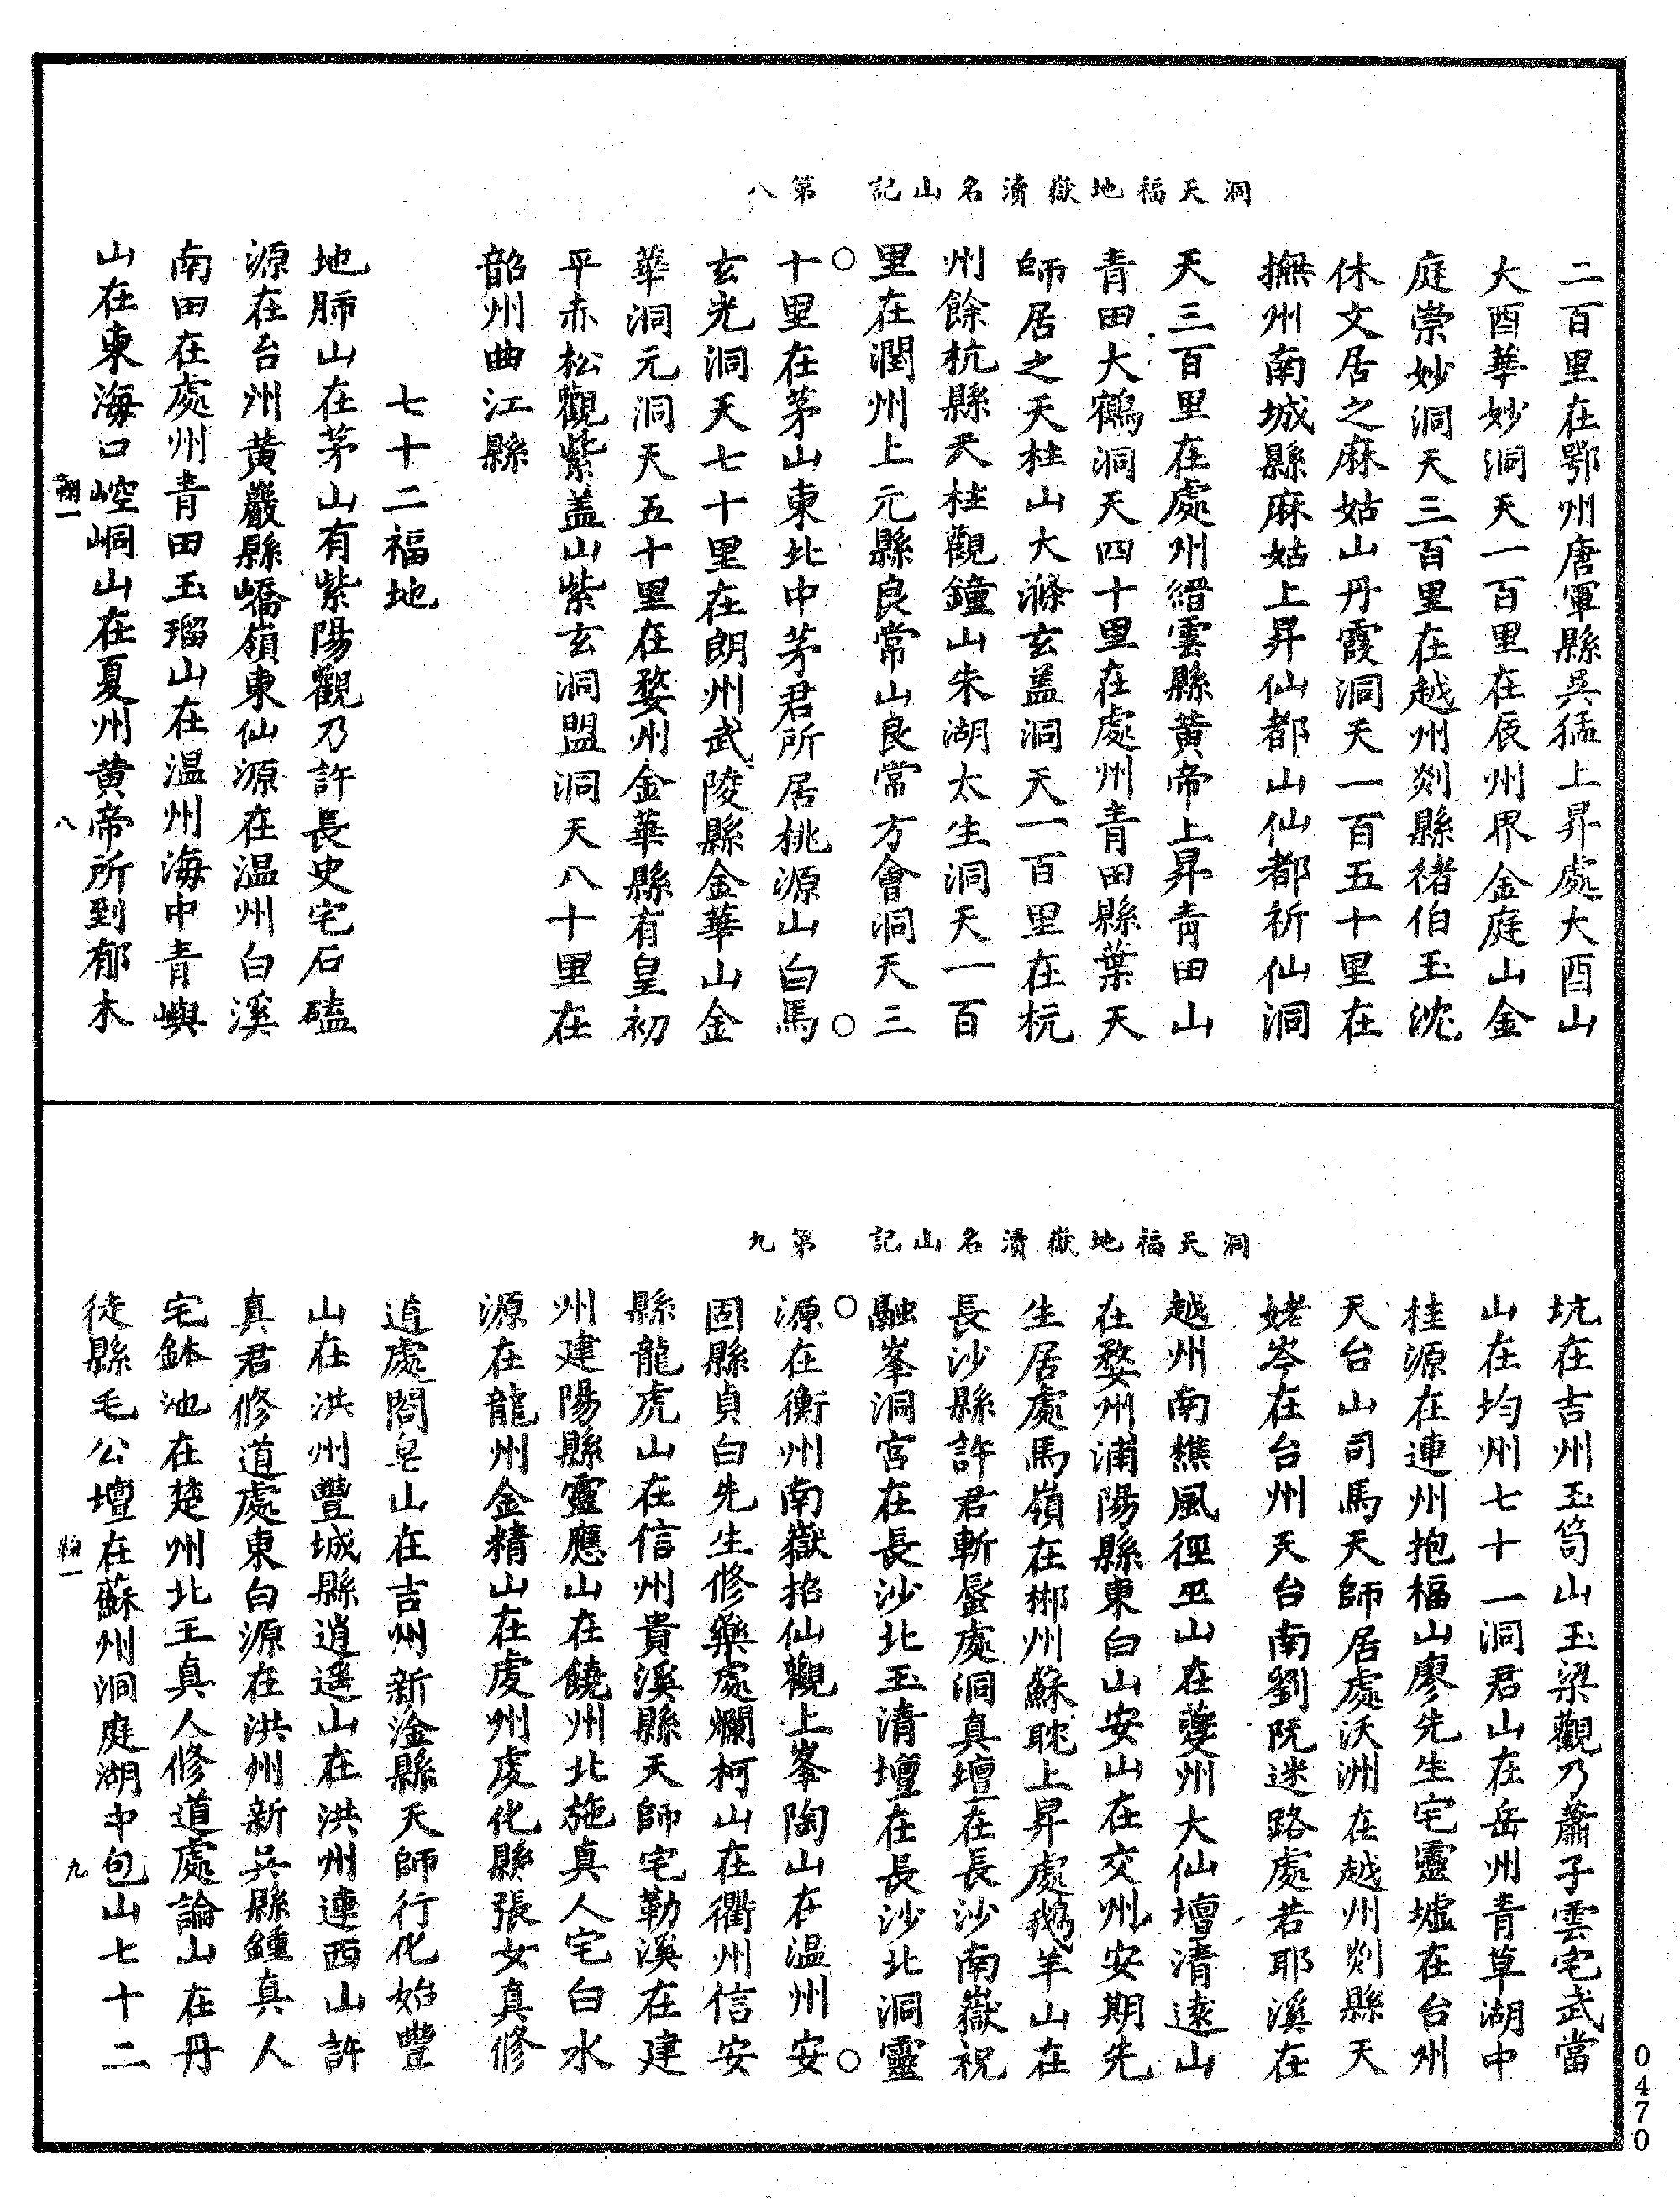 洞天福地嶽瀆名山記 第八
二百里在鄂州唐軍縣吳猛上昇處大酉山
大酉華妙洞天一百里在辰州界金庭山金
庭崇妙洞天三百里在越州剡縣禇伯玉沈
休文居之麻姑山丹霞洞天一百五十里在
撫州南城縣麻姑上昇仙都山仙都祈仙洞
天三百里在處州縉雲縣黃帝上昇青田山
青田大鶴洞天四十里在處州青田縣葉天
師居之天柱山大滌玄盖洞天一百里在杭
州餘杭縣天柱觀鐘山朱湖太生洞天一百
里在潤州上元縣良常山良常方會洞天三
十里在茅山東北中茅君所居桃源山白馬
玄光洞天七十里在朗州武陵縣金華山金
華洞元洞天五十里在婺州金華縣有皇初
平赤松觀紫盖山紫玄洞盟洞天八十里在
韶州曲江縣
七十二福地
地肺山在茅山有紫陽觀乃許長史宅石磕
源在台州黃巖縣嶠嶺東仙源在温州白溪
南田在處州青田玉瑠山在温州海中青嶼
山在東海口崆峒山在夏州黃帝所到郁木
八
洞天福地嶽瀆名山記 第九
坑在吉州玉笥山玉梁觀乃蕭子雲宅武當
山在均州七十一洞君山在岳州青草湖中
桂源在連州抱福山廖先生宅靈墟在台州
天台山司馬天師居處沃洲在越州剡縣天
姥岑在台州天台南劉阮迷路處若耶溪在
越州南樵風徑巫山在夔州大仙壇清遠山
在婺州浦陽縣東白山安山在交州安期先
生居處馬嶺在郴州蘇耽上昇處鵝羊山在
長沙縣許君斬蜃處洞真壇在長沙南嶽祝
融峯洞宮在長沙北玉清壇在長沙北洞靈
源在衡州南嶽招仙觀上峯陶山在温州安
固縣貞白先生修藥處爛柯山在衢州信安
縣龍虎山在信州貴溪縣天師宅勒溪在建
州建陽縣靈應山在饒州北施真人宅白水
源在龍州金精山在虔州虔化縣張女真修
道處閤皂山在吉州新淦縣天師行化始豐
山在洪州豐城縣逍遙山在洪州連西山許
真君修道處東白源在洪州新吳縣鍾真人
宅鉢池在楚州北王真人修道處論山在丹
徒縣毛公壇在蘇州洞庭湖中包山七十二
九
0470